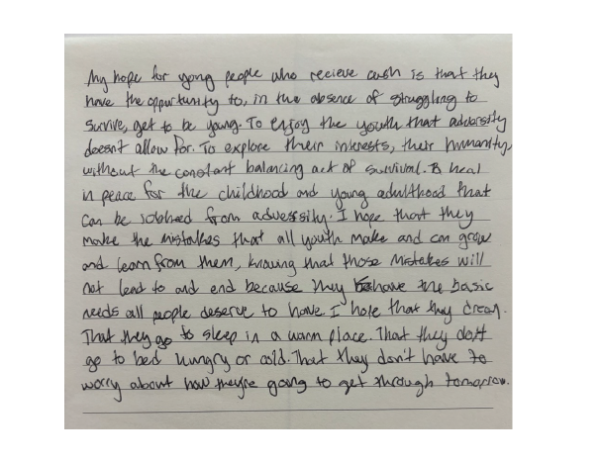 My hope for yong people who recieve cash is that they
have the oppurtunity to, in the absence of struggling to
survive, get to be young. To enjoy the youth that adversity
doesn't allow for. To explore their interests, their humanity,
without the constant balancing act of survival. To heal
in peace for the childhood and young adulthood that
can be robbed from adversity. I hope that they
make the mistakes that all youth make and can grow
and learn from them, knowing that those mistakes will
not lead to and end because they have the basic
needs all people deserve to have I hope that they dream.
That they go to sleep in a warm place. That they don't
go to bed hungry or cold. That they don't have to
worry about how they're going to get through tomorrow.